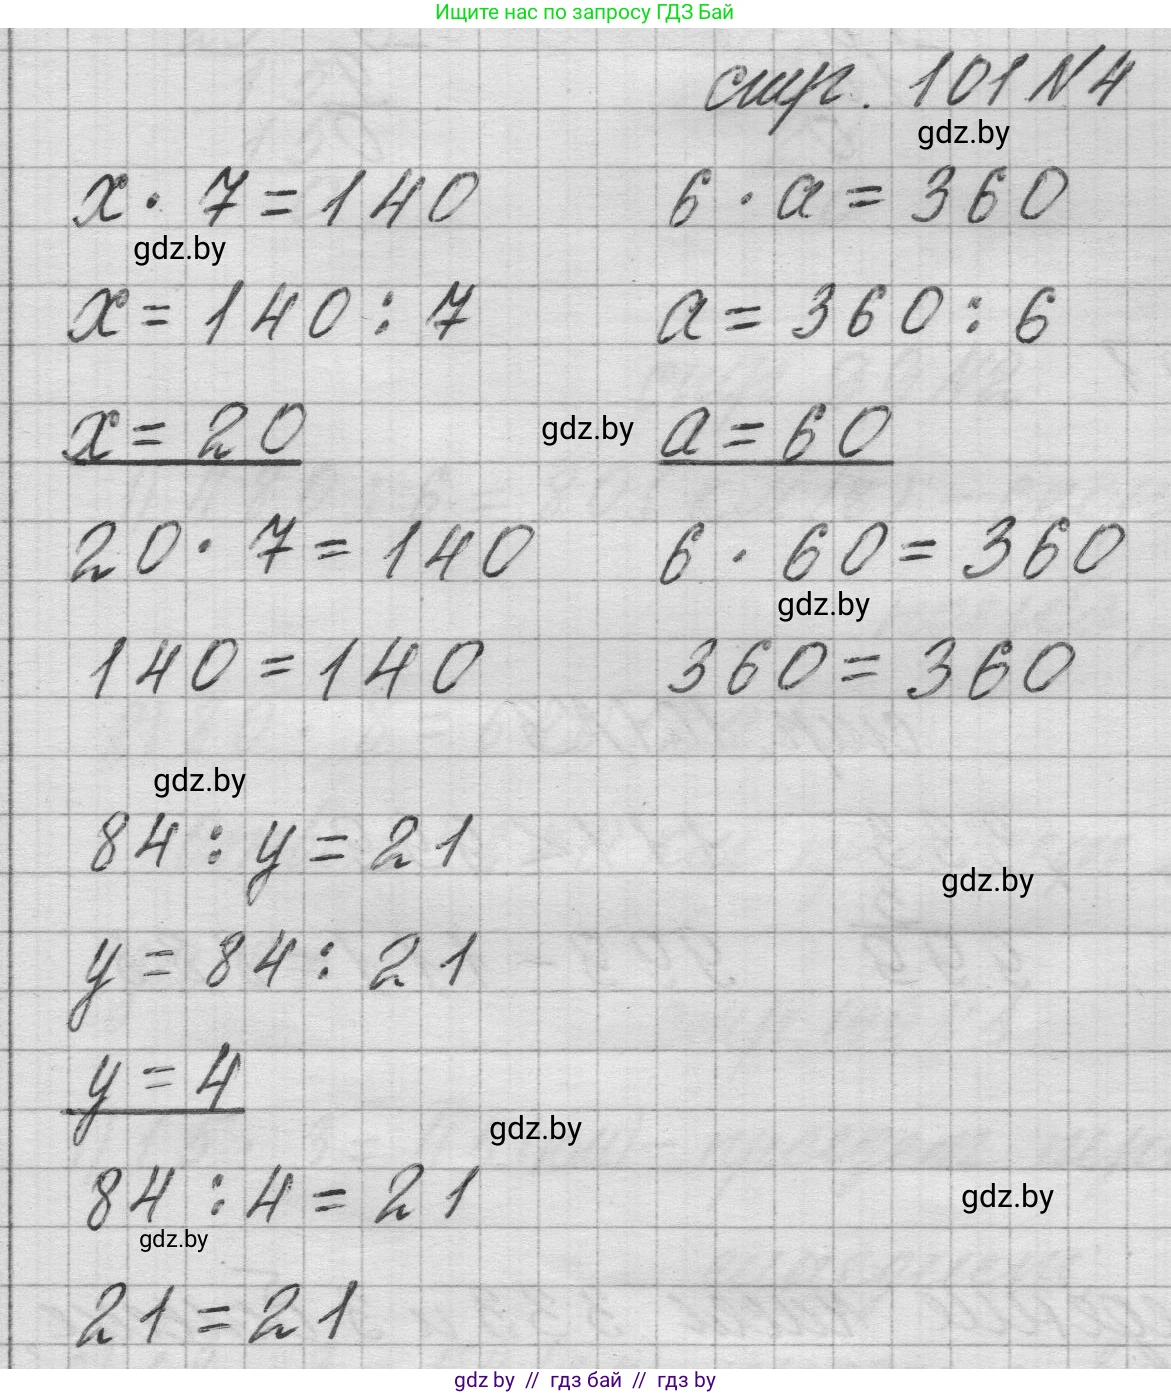 Ищите нас по запросу ГДЗ Бай
стр. 101 N4
gdz.by
x · 7 = 140
6 · a = 360
gdz.by
x = 140 : 7
a = 360 : 6
x = 20
gdz.by
a = 60
20 · 7 = 140
6 · 60 = 360
gdz.by
140 = 140
360 = 360
gdz.by
84 : y = 21
gdz.by
y = 84 : 21
y = 4
gdz.by
84 : 4 = 21
gdz.by
gdz.by
21 = 21
gdz by // гдз бай // гдз by